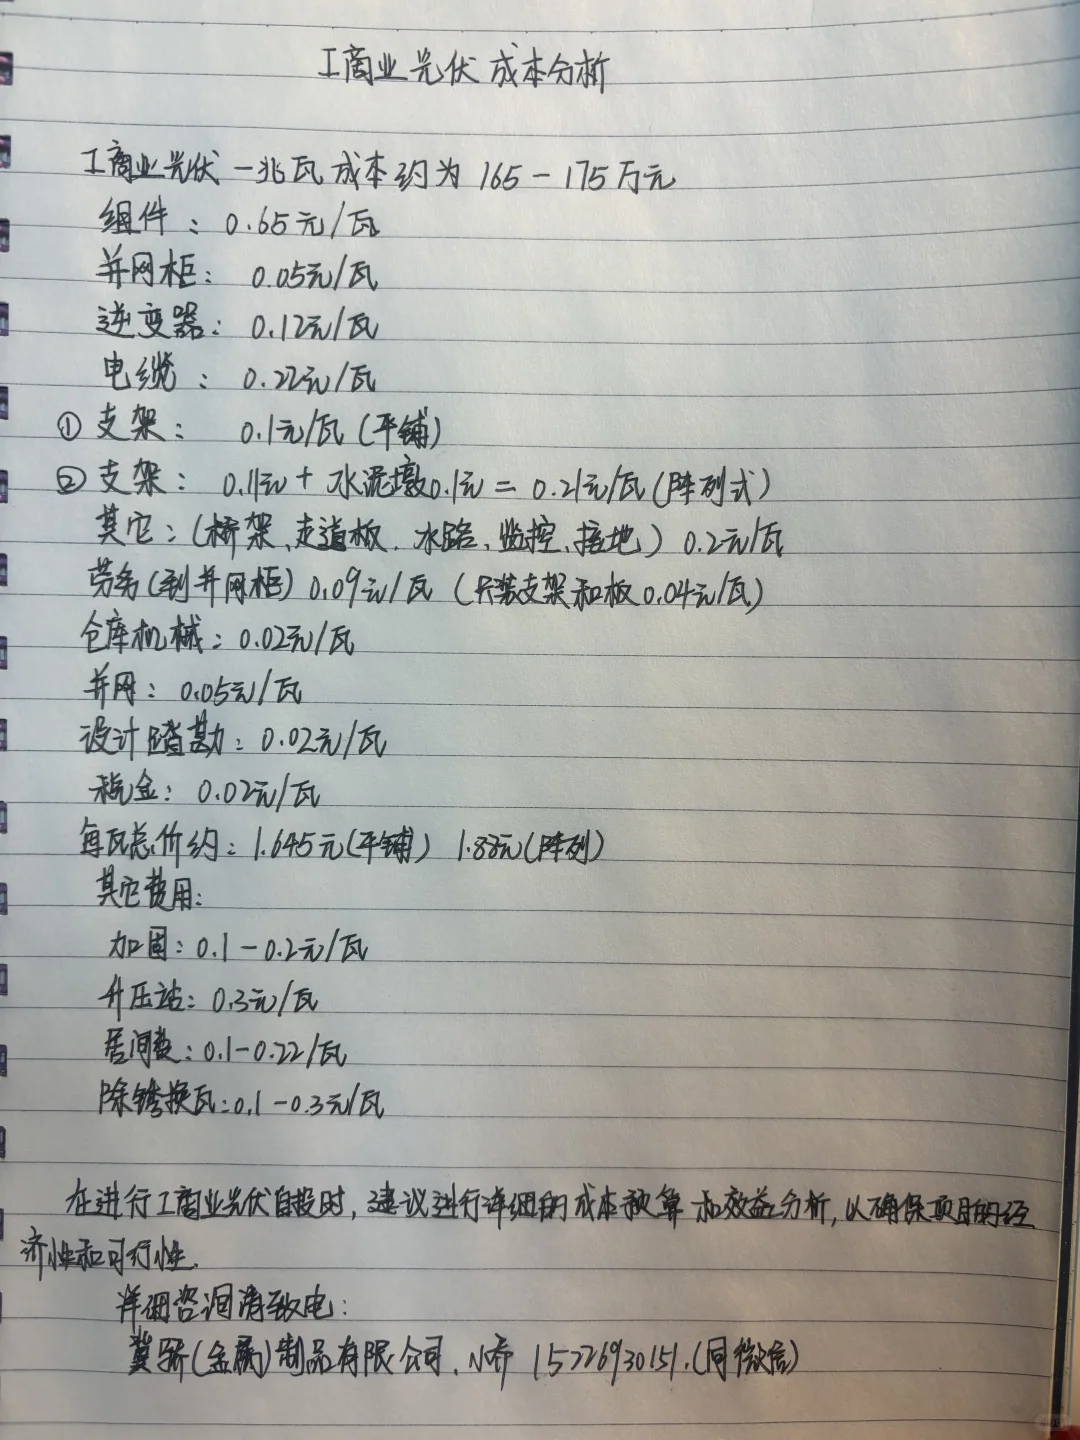 工商业光伏成本分析
工商业光伏一兆瓦成本约为165-175万元
组件：0.65元/瓦
并网柜：0.05元/瓦
逆变器：0.12元/瓦
电缆：0.22元/瓦
①支架：0.1元/瓦(平铺)
②支架：0.11元+水泥墩0.1元=0.21元/瓦(阵列式)
其它：(桥架、走道板、水路、监控、接地)0.2元/瓦
劳务(到并网柜)0.09元/瓦(只装支架和板0.04元/瓦)
仓库机械：0.02元/瓦
并网：0.05元/瓦
设计踏勘：0.02元/瓦
税金：0.02元/瓦
每瓦总价约：1.645元(平铺) 1.88元(阵列)
其它费用：
加固：0.1-0.2元/瓦
升压站：0.3元/瓦
居间费：0.1-0.22/瓦
除锈换瓦：0.1-0.3元/瓦
在进行工商业光伏自投时，建议进行详细的成本预算和效益分析，以确保项目的经
济性和可行性.
详细咨询请致电：
冀骄(金属)制品有限公司.小乔 15226930151.(同微信)